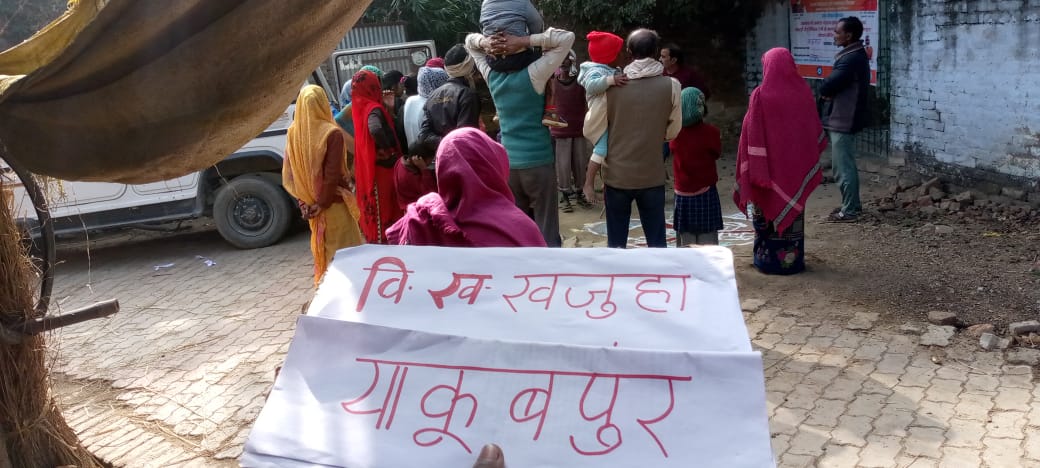 वि. ख. खजुहा
याकूबपुर